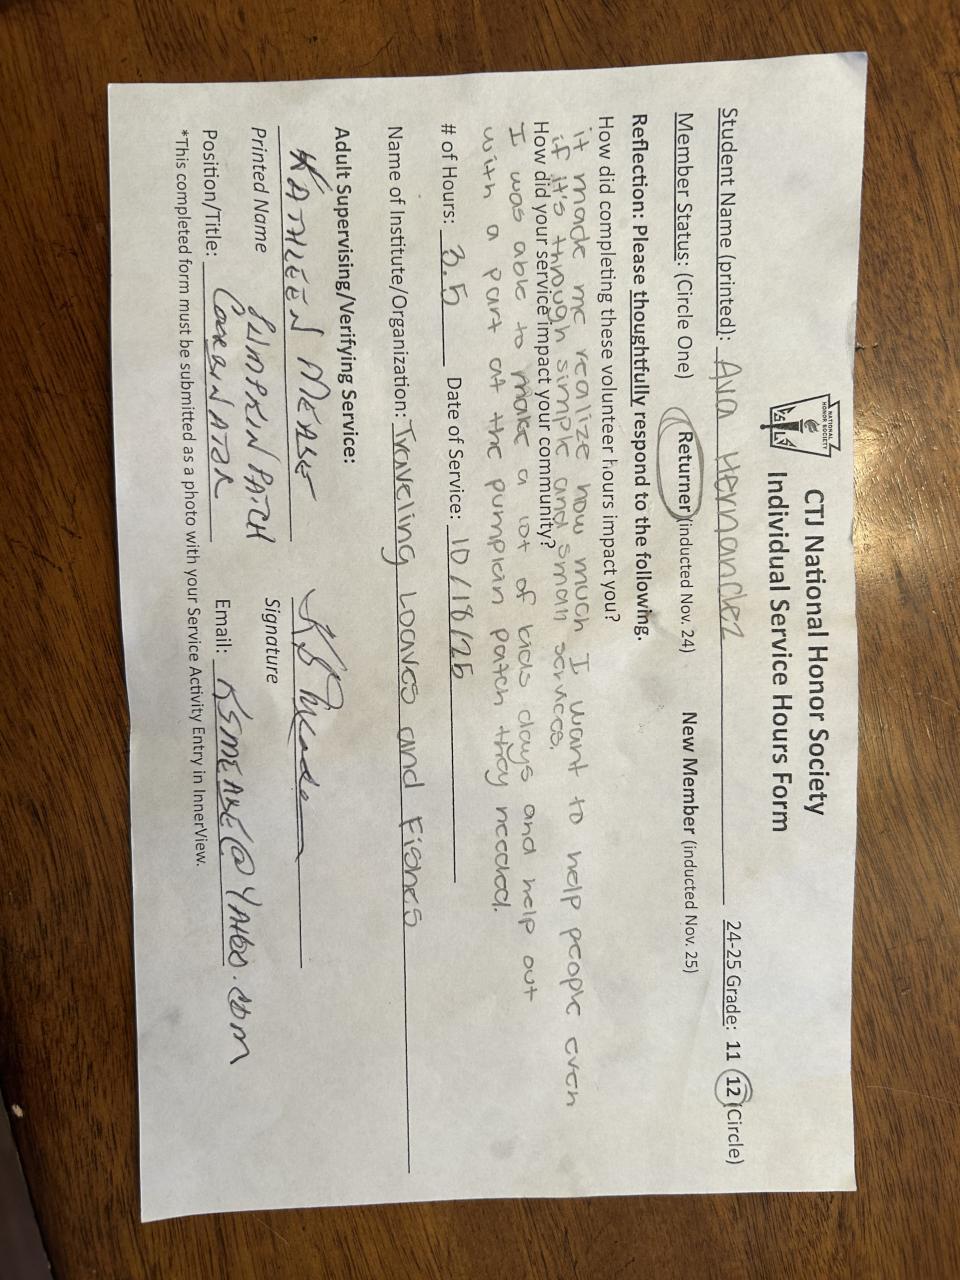 NATIONAL
HONOR SOCIETY
CTJ National Honor Society
Individual Service Hours Form
Student Name (printted): Ava Hernandez 24-25 Grade: 11 12 (Circle)
Member Status: (Circle One) Returner (inducted Nov. 24) New Member (inducted Nov. 25)
Reflection: Please thoughtfully respond to the following.
How did completing these volunteer hours impact you?
it made me realize how much I want to help people even
if it's through simple and small services.
How did your service impact your community?
I was able to make a lot of kids days and help out
with a part at the pumpkin patch they needed.
# of Hours: 3.5 Date of Service: 10/18/25
Name of Institute/Organization: Traveling Loaves and Fishes
Adult Supervising/Verifying Service:
KATHLEEN MEADE
Printed Name Signature
PUMPKIN PATCH
Position/Title: COORDINATOR Email: KSMEADE@YAHOO.COM
*This completed form must be submitted as a photo with your Service Activity Entry in InnerView.